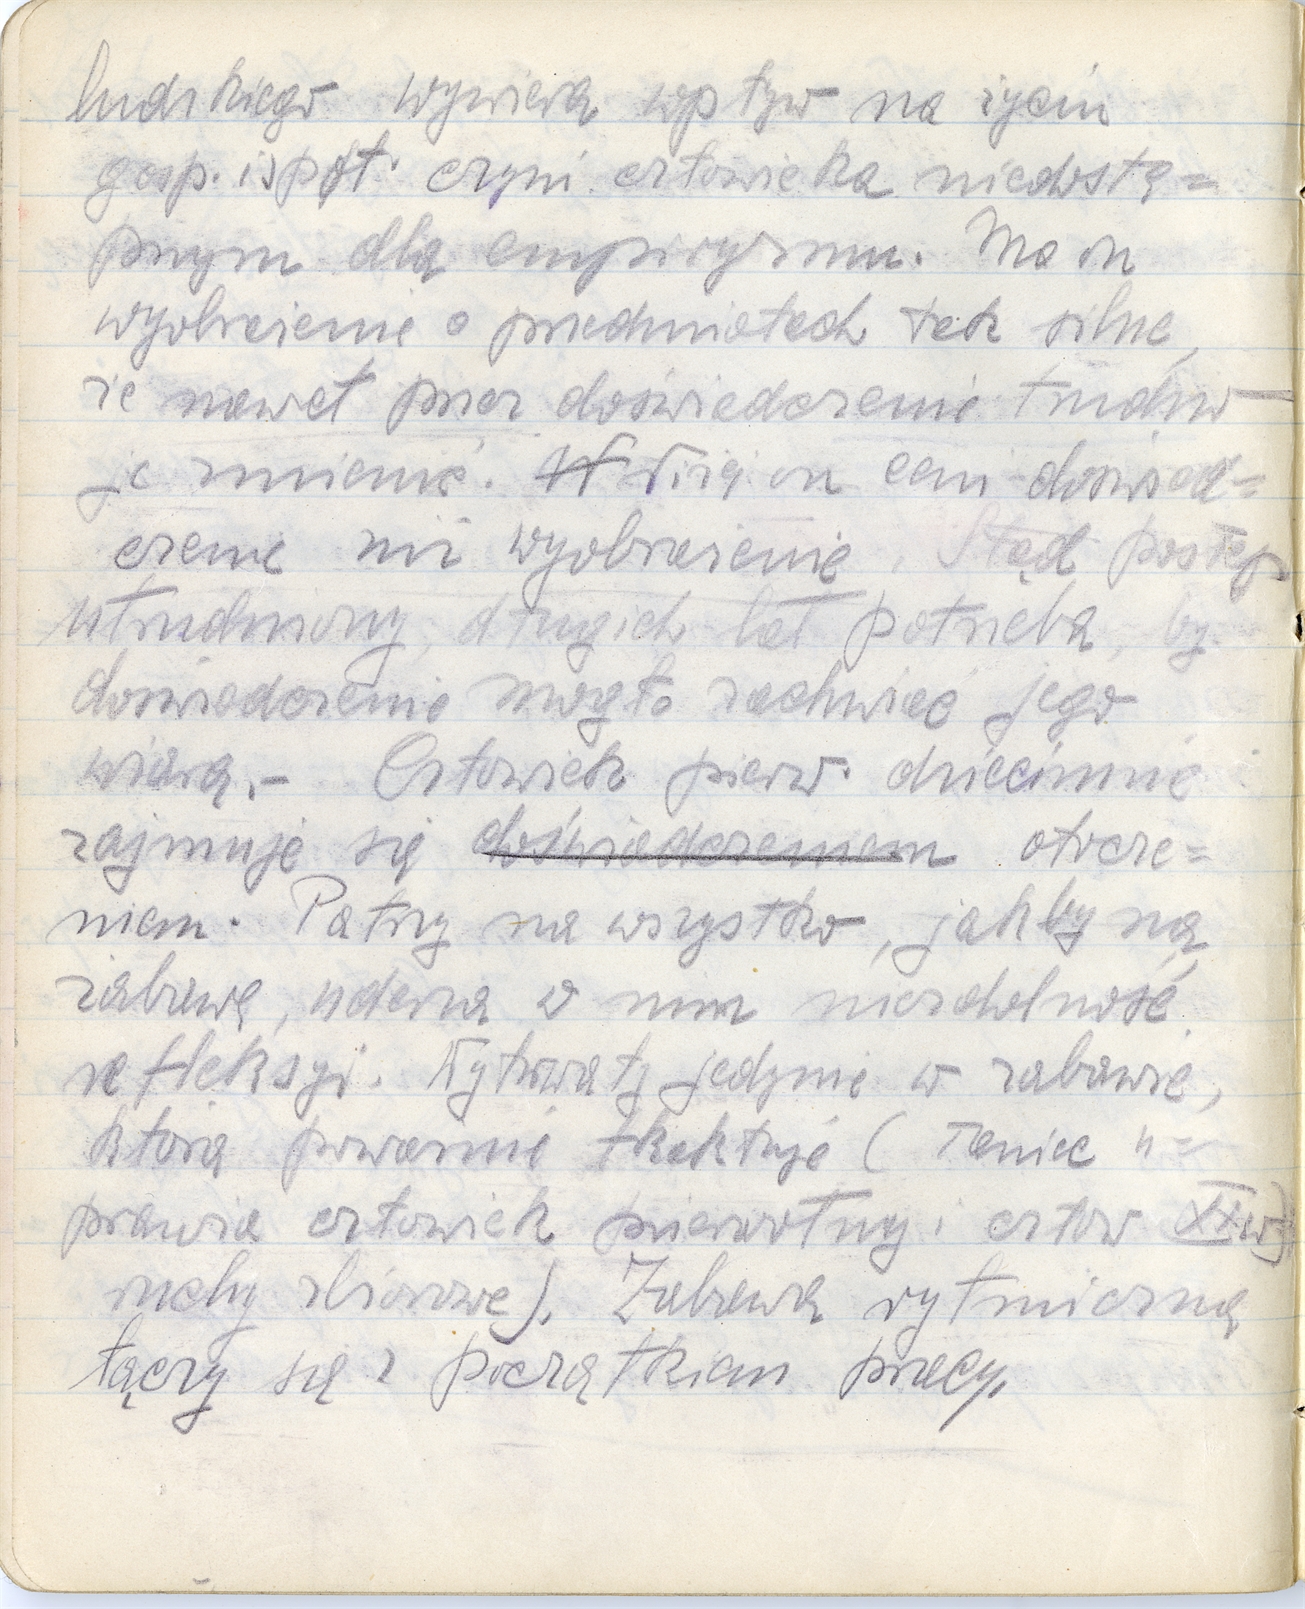 ludzkiego wywiera wpływ na życiu
gosp. i społ. czyni człowieka niedostę=
pnym dla empiryzmu. Ma on
wyobrażenie o przedmiotach tak silne,
że nawet przez doświadczenie trudno
je zmienić. Niżej on ceni doświad=
czenie niż wyobrażenie. Stąd postęp
utrudniony, długich lat potrzeba, by
doświadczenie mogło zachwiać jego
wiarą.- Człowiek pierw. dziecinnie
zajmuje się doświadczeniem otocze=
niem. Patrzy na wszystko, jakby na
zabawę, uderza w nim niezdolność
refleksyi. Wytrwały jedynie w zabawie,
którą poważnie traktuje ( Taniec u=
prawia człowiek pierwotny i człow XX w)
ruchy zbiorowe). Zabawa rytmiczna
łączy się z początkiem pracy.